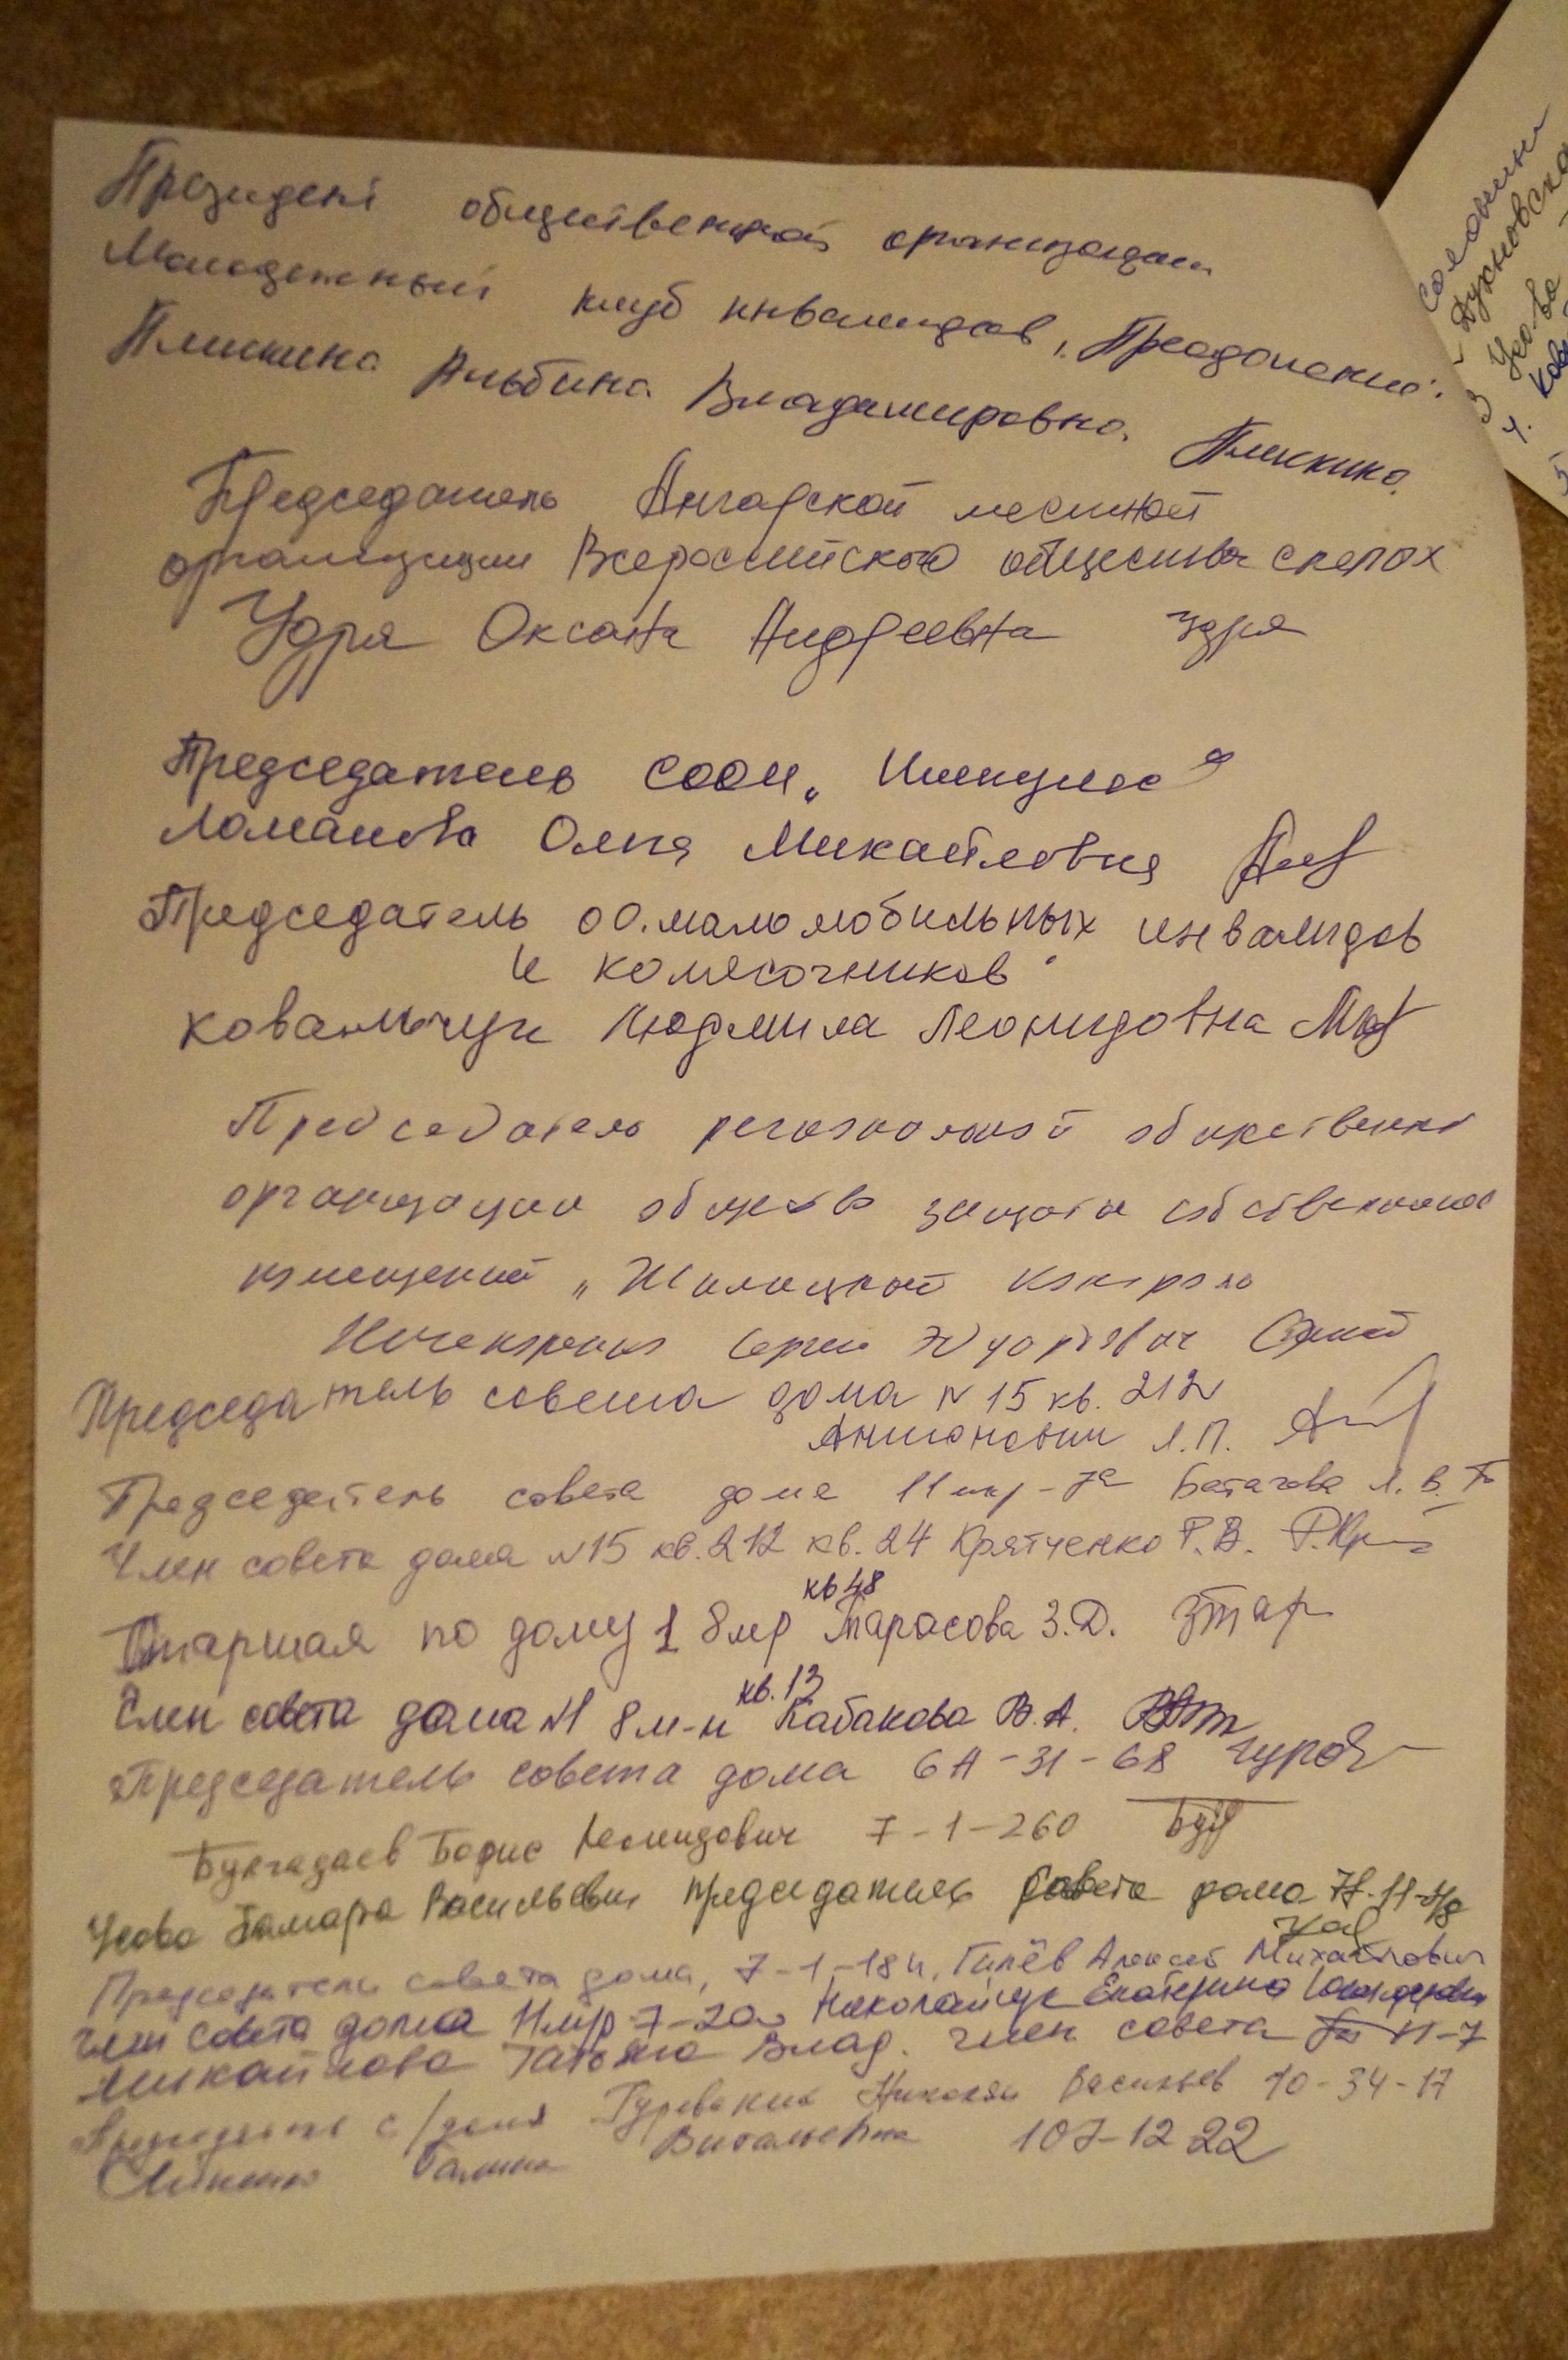 Президент общественной организации
Молодежный клуб инвалидов "Преодоление".
Плискина Альбина Владимировна. Плискина
Председатель Ангарской местной
организации Всероссийского общества слепых
Удря Оксана Андреевна Удря
Председатель СООИ "Импульс"
Ломанова Ольга Михайловна
Председатель ОО. маломобильных инвалидов
и колясочников"
Ковальчук Людмила Леонидовна
Председатель региональной общественной
организации общества защиты собственников
помещений "Жилищный контроль
Сергей Эдуардович
Председатель совета дома N 15 кв. 212
Антонович Л.П.
Председатель совета дома 11 мкр-7а Батагова Л. В.
Член совета дома N15 кв. 212 кв. 24 Крятченко Г. В.
кв 48
Старшая по дому 1 8 мр Тарасова З.Д. ЗТар
кв. 13
Член совета дома N1 8 м-н Кабакова В. А.
Председатель совета дома 6А-31-68 Гуров
Булгадаев Борис Леонидович 7-1-260
Усова Тамара Васильевна председатель Совета дома
Председатель совета дома, 7-1-184, Гилёв Алексей Михайлович
член совета дома 11 мкр 7-20 Николайчук Екатерина
Михайлова Татьяна Влад. член совета 11-7
с/дома Николай Васильев 10-34-17
Галина Витальевна 107-12 22
Солонин
Духновска
3 Усова
4. Ков
5